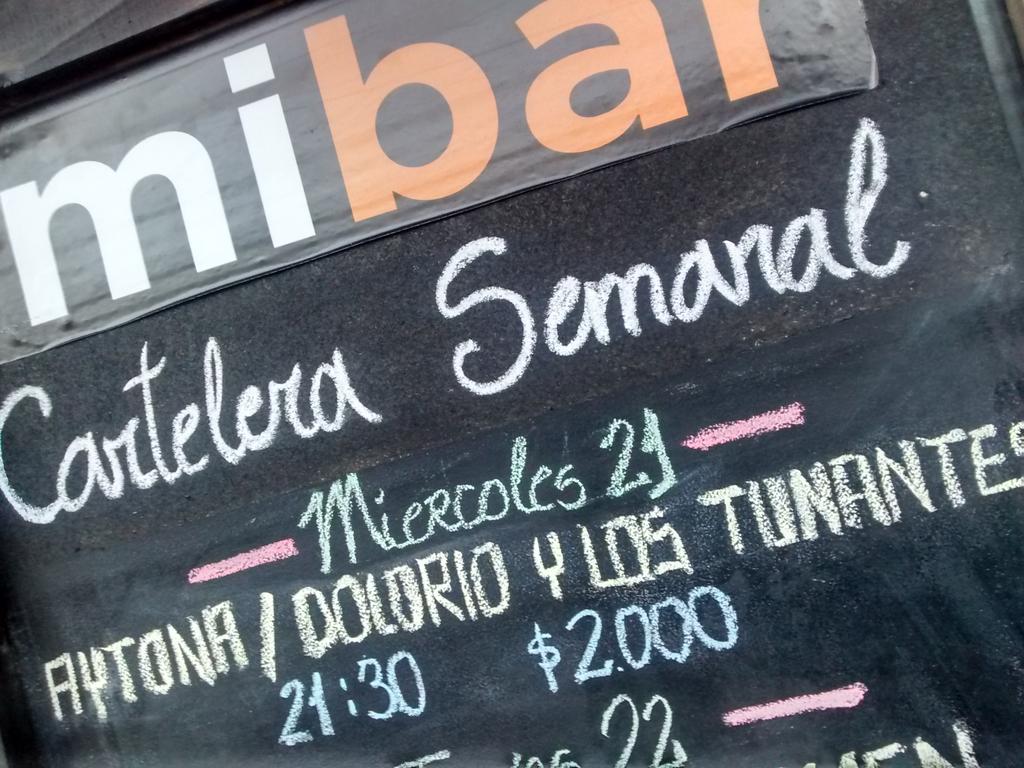 mibar
Cartelera Semanal
Miercoles 21
AYTONA / DOLORIO Y LOS TUNANTES
21:30 $2.000
22